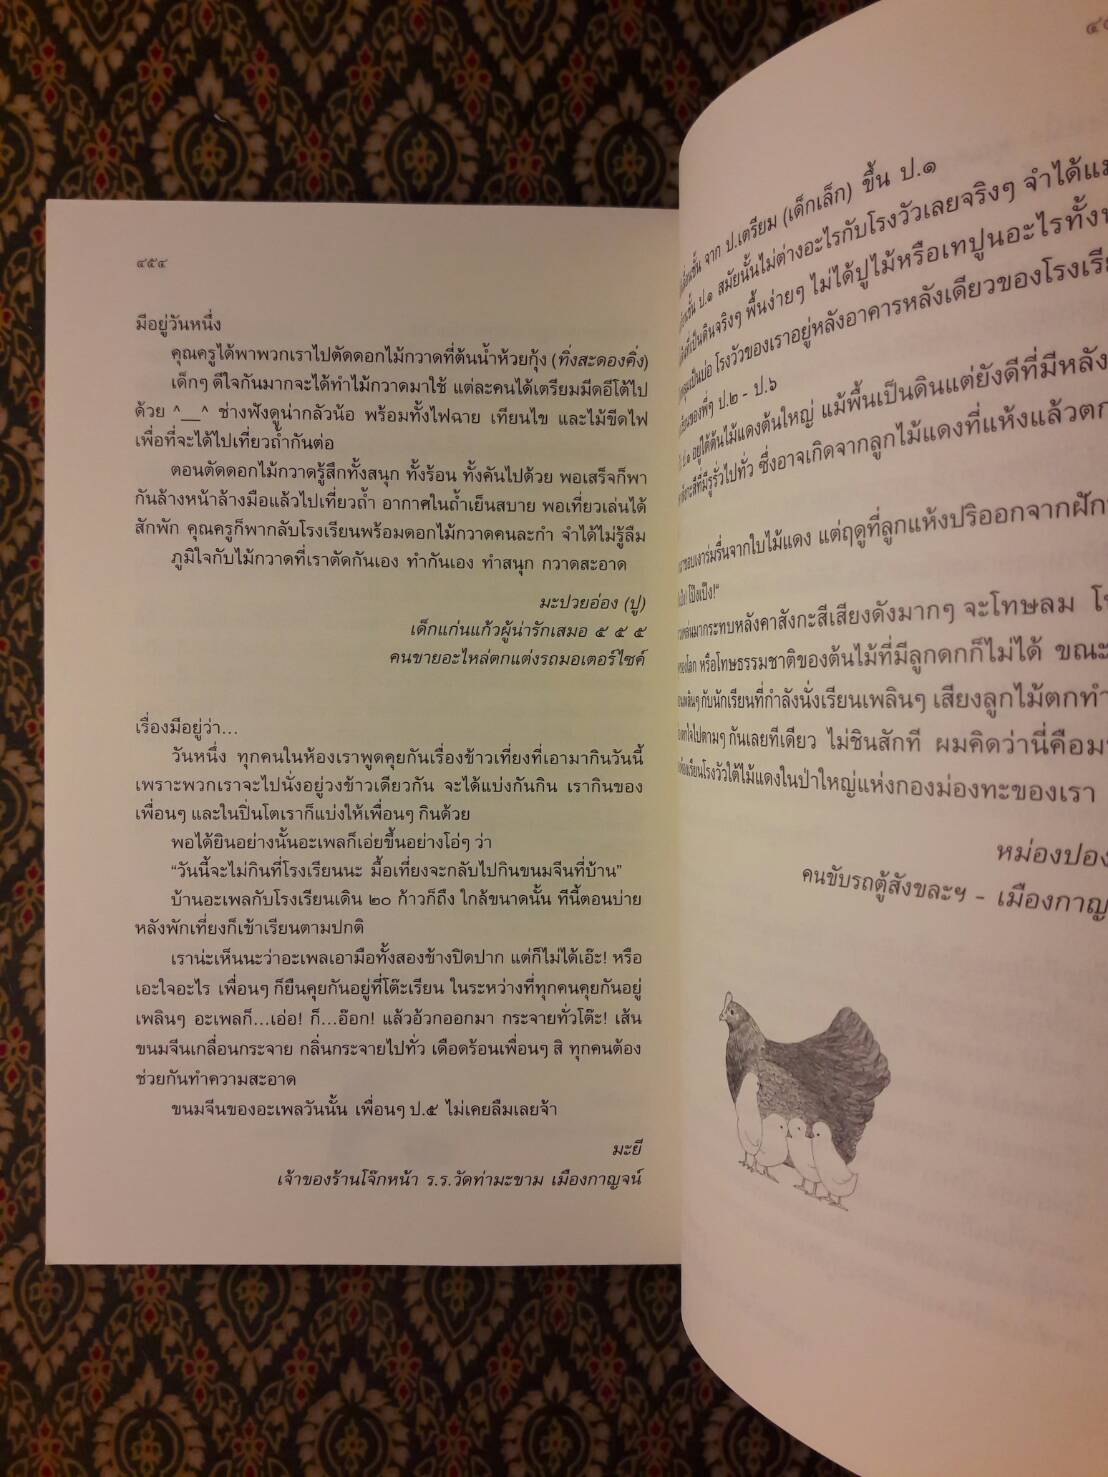 ๔๕๔
มีอยู่วันหนึ่ง
คุณครูได้พาพวกเราไปตัดดอกไม้กวาดที่ต้นน้ำห้วยกุ้ง (ทิ่งสะดองคิ่ง)
เด็กๆ ดีใจกันมากจะได้ทำไม้กวาดมาใช้ แต่ละคนได้เตรียมมีดอีโต้ไป
ด้วย ^__^ ช่างฟังดูน่ากลัวน้อ พร้อมทั้งไฟฉาย เทียนไข และไม้ขีดไฟ
เพื่อที่จะได้ไปเที่ยวถ้ำกันต่อ
ตอนตัดดอกไม้กวาดรู้สึกทั้งสนุก ทั้งร้อน ทั้งคันไปด้วย พอเสร็จก็พา
กันล้างหน้าล้างมือแล้วไปเที่ยวถ้ำ อากาศในถ้ำเย็นสบาย พอเที่ยวเล่นได้
สักพัก คุณครูก็พากลับโรงเรียนพร้อมดอกไม้กวาดคนละกำ จำได้ไม่รู้ลืม
ภูมิใจกับไม้กวาดที่เราตัดกันเอง ทำกันเอง ทำสนุก กวาดสะอาด
มะปวยอ่อง (ปู)
เด็กแก่นแก้วผู้น่ารักเสมอ ๕ ๕ ๕
คนขายอะไหล่ตกแต่งรถมอเตอร์ไซค์
เรื่องมีอยู่ว่า...
วันหนึ่ง ทุกคนในห้องเราพูดคุยกันเรื่องข้าวเที่ยงที่เอามากินวันนี้
เพราะพวกเราจะไปนั่งอยู่วงข้าวเดียวกัน จะได้แบ่งกันกิน เรากินของ
เพื่อนๆ และในปิ่นโตเราก็แบ่งให้เพื่อนๆ กินด้วย
พอได้ยินอย่างนั้นอะเพลก็เอ่ยขึ้นอย่างโอ่ๆ ว่า
“วันนี้จะไม่กินที่โรงเรียนนะ มื้อเที่ยงจะกลับไปกินขนมจีนที่บ้าน”
บ้านอะเพลกับโรงเรียนเดิน ๒๐ ก้าวก็ถึง ใกล้ขนาดนั้น ทีนี้ตอนบ่าย
หลังพักเที่ยงก็เข้าเรียนตามปกติ
เราน่ะเห็นนะว่าอะเพลเอามือทั้งสองข้างปิดปาก แต่ก็ไม่ได้เอ๊ะ! หรือ
เอะใจอะไร เพื่อนๆ ก็ยืนคุยกันอยู่ที่โต๊ะเรียน ในระหว่างที่ทุกคนคุยกันอยู่
เพลินๆ อะเพลก็...เอ่อ! ก็...อ๊อก! แล้วอ้วกออกมา กระจายทั่วโต๊ะ! เส้น
ขนมจีนเกลื่อนกระจาย กลิ่นกระจายไปทั่ว เดือดร้อนเพื่อนๆ สิ ทุกคนต้อง
ช่วยกันทำความสะอาด
ขนมจีนของอะเพลวันนั้น เพื่อนๆ ป.๕ ไม่เคยลืมเลยจ้า
มะยี
เจ้าของร้านโจ๊กหน้า ร.ร.วัดท่ามะขาม เมืองกาญจน์
จาก ป.เตรียม (เด็กเล็ก) ขึ้น ป.๑
ป.๑ สมัยนั้นไม่ต่างอะไรกับโรงวัวเลยจริงๆ จำได้
เป็นดินจริงๆ พื้นง่ายๆ ไม่ได้ปูไม้หรือเทปูนอะไรทั้ง
โรงวัวของเราอยู่หลังอาคารหลังเดียวของโรง
ของพี่ๆ ป.๒ - ป.๖
ป.๑ อยู่ใต้ต้นไม้แดงต้นใหญ่ แม้พื้นเป็นดินแต่ยังดีที่มีหลัง
ที่มีรูรั่วไปทั่ว ซึ่งอาจเกิดจากลูกไม้แดงที่แห้งแล้วตก
ชอบเงาร่มรื่นจากใบไม้แดง แต่ฤดูที่ลูกแห้งปริออกจากฝัก
โป๊งเป๊ง!”
มากระทบหลังคาสังกะสีเสียงดังมากๆ จะโทษลม
หรือโทษธรรมชาติของต้นไม้ที่มีลูกดกก็ไม่ได้ ขณะ
เพลินๆ กับนักเรียนที่กำลังนั่งเรียนเพลินๆ เสียงลูกไม้ตกทำ
ตกใจไปตามๆ กันเลยทีเดียว ไม่ชินสักที ผมคิดว่านี่คือ
เรียนโรงวัวใต้ไม้แดงในป่าใหญ่แห่งกองม่องทะของเรา
หม่องปอง
คนขับรถตู้สังขละฯ - เมืองกาญ